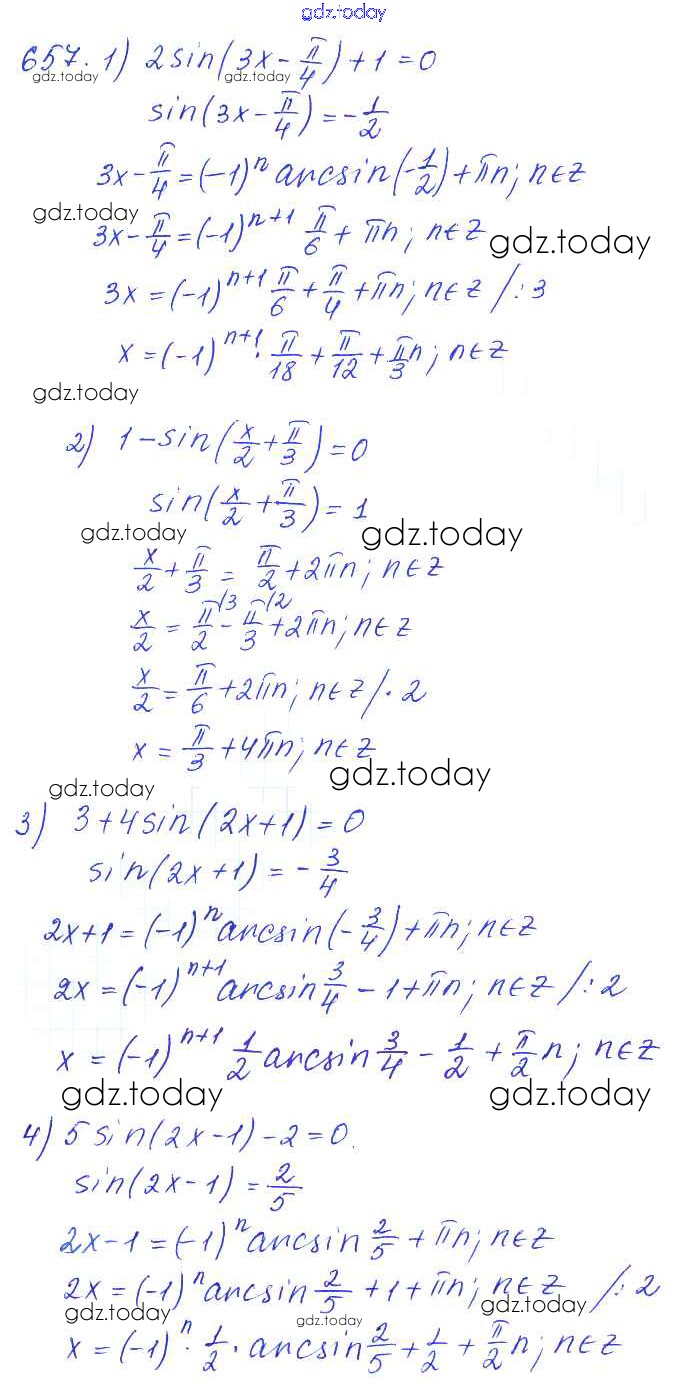 gdz.today
657. 1) 2sin(3x - π/4) + 1 = 0
gdz.today gdz.today
sin(3x - π/4) = -1/2
3x - π/4 = (-1)^n arcsin(-1/2) + πn; n∈Z
gdz.today
3x - π/4 = (-1)^(n+1) π/6 + πn; n∈Z
gdz.today
3x = (-1)^(n+1) π/6 + π/4 + πn; n∈Z /:3
x = (-1)^(n+1) · π/18 + π/12 + π/3 n; n∈Z
gdz.today
2) 1 - sin(x/2 + π/3) = 0
sin(x/2 + π/3) = 1
gdz.today gdz.today
x/2 + π/3 = π/2 + 2πn; n∈Z
x/2 = π/2 \3 - π/3 \2 + 2πn; n∈Z
x/2 = π/6 + 2πn; n∈Z /·2
x = π/3 + 4πn; n∈Z
gdz.today gdz.today
3) 3 + 4sin(2x+1) = 0
sin(2x+1) = -3/4
2x+1 = (-1)^n arcsin(-3/4) + πn; n∈Z
2x = (-1)^(n+1) arcsin 3/4 - 1 + πn; n∈Z /:2
x = (-1)^(n+1) 1/2 arcsin 3/4 - 1/2 + π/2 n; n∈Z
gdz.today gdz.today
4) 5sin(2x-1) - 2 = 0.
sin(2x-1) = 2/5
2x-1 = (-1)^n arcsin 2/5 + πn; n∈Z
2x = (-1)^n arcsin 2/5 + 1 + πn; n∈Z /:2
gdz.today gdz.today gdz.today
x = (-1)^n · 1/2 · arcsin 2/5 + 1/2 + π/2 n; n∈Z